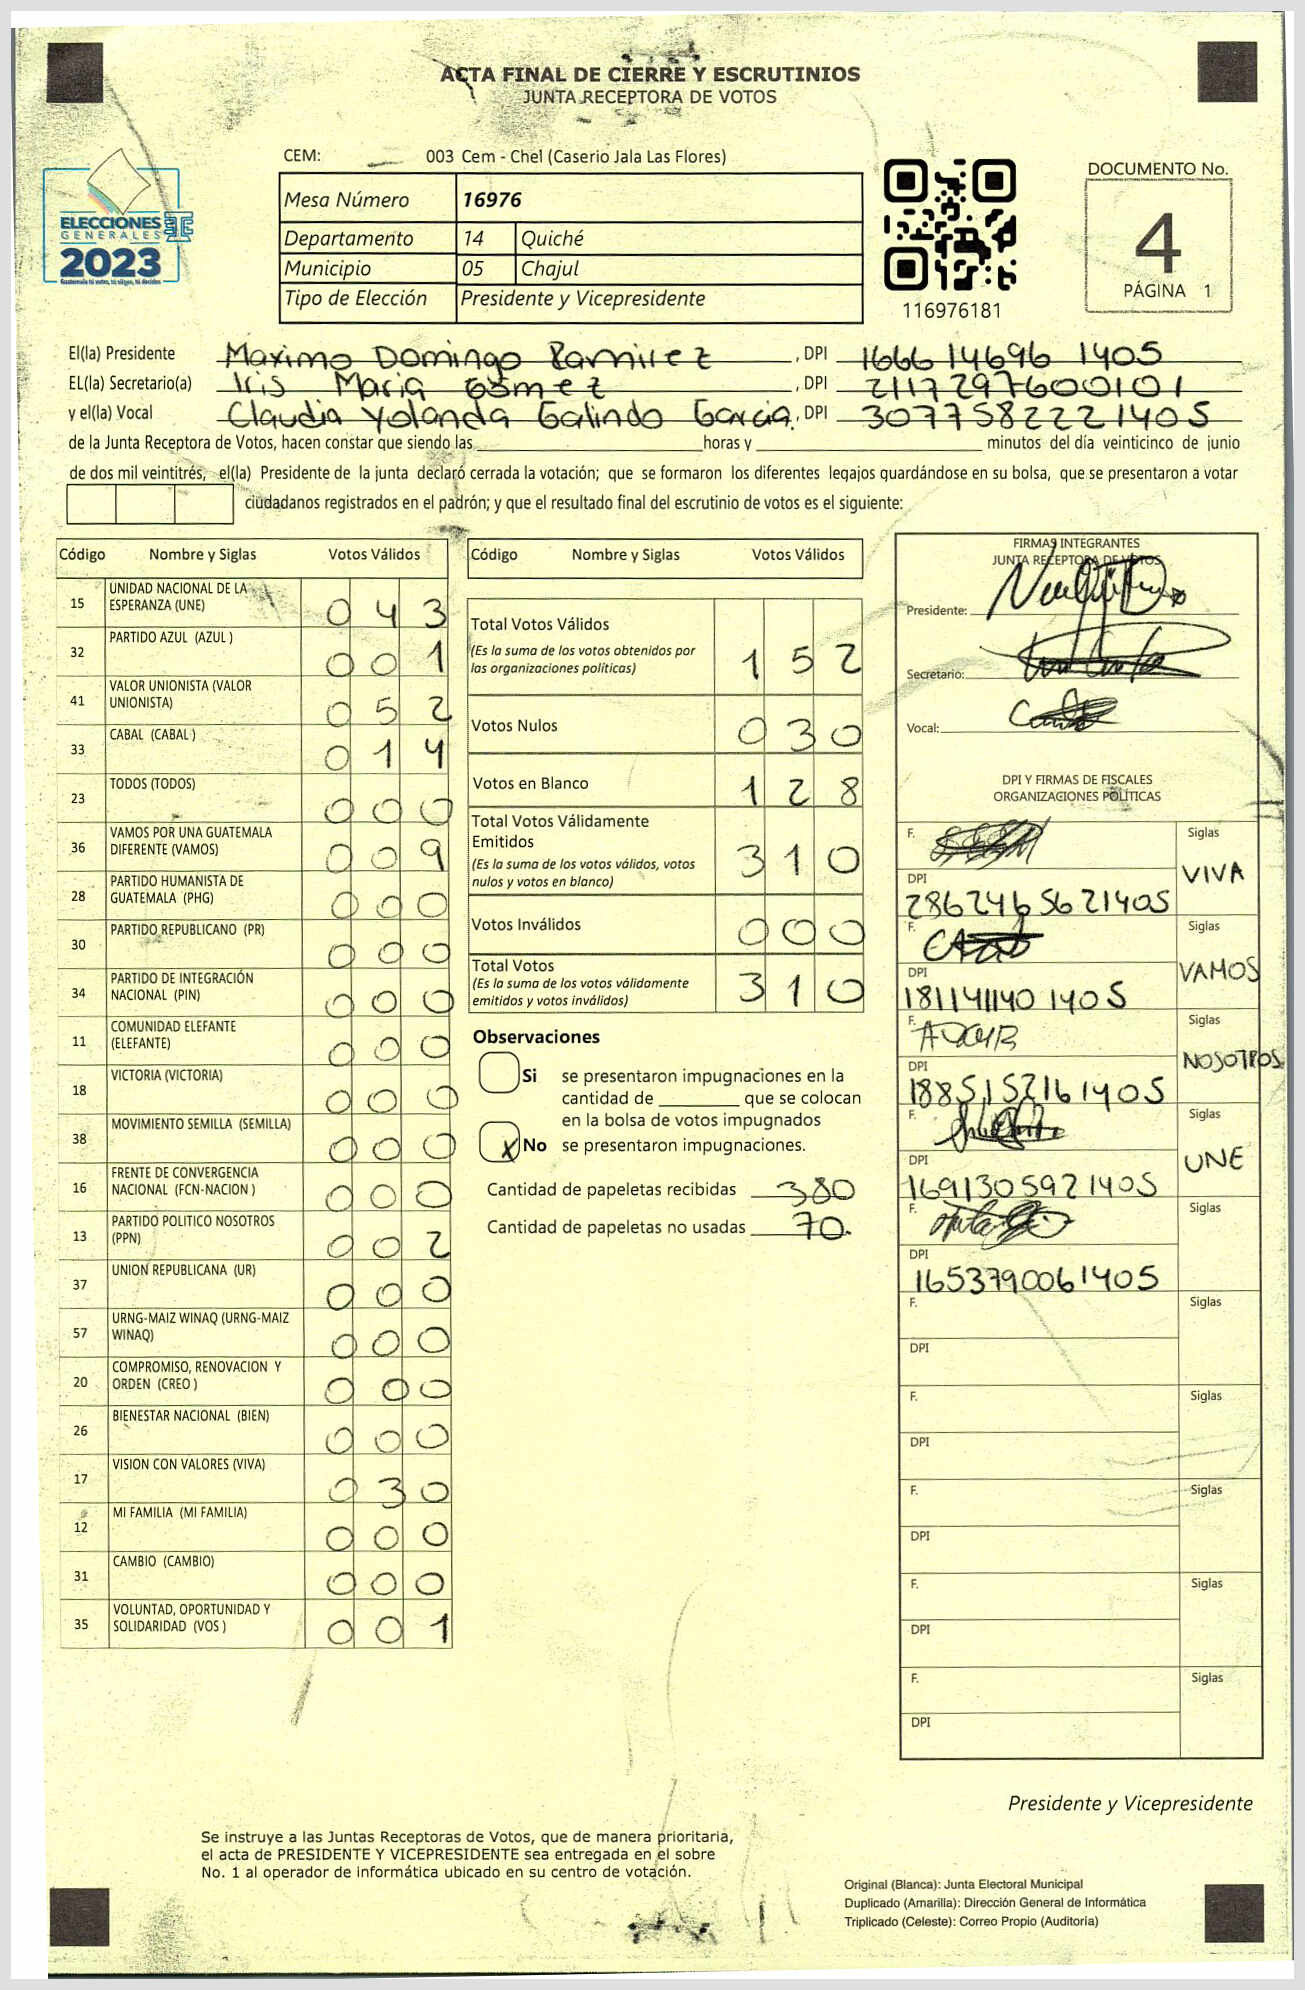 ACTA FINAL DE CIERRE Y ESCRUTINIOS
JUNTA RECEPTORA DE VOTOS
CEM: 003 Cem - Chel (Caserio Jala Las Flores)
ELECCIONES
GENERALES
2023
Mesa Número 16976
Departamento 14 Quiché
Municipio 05 Chajul
Tipo de Elección Presidente y Vicepresidente
116976181
DOCUMENTO No.
4
PÁGINA 1
El(la) Presidente Maximo Domingo Ramirez, DPI 1666 14696 1405
EL(la) Secretario(a) Iris Maria Gómez, DPI 2117297600101
y el(la) Vocal Claudia Yolanda Galindo Garcia, DPI 3077582221405
de la Junta Receptora de Votos, hacen constar que siendo las horas y minutos del día veinticinco de junio
de dos mil veintitrés, el(la) Presidente de la junta declaró cerrada la votación; que se formaron los diferentes legajos quardándose en su bolsa, que se presentaron a votar
ciudadanos registrados en el padrón; y que el resultado final del escrutinio de votos es el siguiente:
Código Nombre y Siglas Votos Válidos
15 UNIDAD NACIONAL DE LA
ESPERANZA (UNE) 0 4 3
32 PARTIDO AZUL (AZUL ) 0 0 1
41 VALOR UNIONISTA (VALOR
UNIONISTA) 0 5 2
33 CABAL (CABAL ) 0 1 4
23 TODOS (TODOS) 0 0 0
36 VAMOS POR UNA GUATEMALA
DIFERENTE (VAMOS) 0 0 9
28 PARTIDO HUMANISTA DE
GUATEMALA (PHG) 0 0 0
30 PARTIDO REPUBLICANO (PR) 0 0 0
34 PARTIDO DE INTEGRACIÓN
NACIONAL (PIN) 0 0 0
11 COMUNIDAD ELEFANTE
(ELEFANTE) 0 0 0
18 VICTORIA (VICTORIA) 0 0 0
38 MOVIMIENTO SEMILLA (SEMILLA) 0 0 0
16 FRENTE DE CONVERGENCIA
NACIONAL (FCN-NACION ) 0 0 0
13 PARTIDO POLITICO NOSOTROS
(PPN) 0 0 2
37 UNION REPUBLICANA (UR) 0 0 0
57 URNG-MAIZ WINAQ (URNG-MAIZ
WINAQ) 0 0 0
20 COMPROMISO, RENOVACION Y
ORDEN (CREO ) 0 0 0
26 BIENESTAR NACIONAL (BIEN) 0 0 0
17 VISION CON VALORES (VIVA) 0 3 0
12 MI FAMILIA (MI FAMILIA) 0 0 0
31 CAMBIO (CAMBIO) 0 0 0
35 VOLUNTAD, OPORTUNIDAD Y
SOLIDARIDAD (VOS ) 0 0 1
Código Nombre y Siglas Votos Válidos
Total Votos Válidos
(Es la suma de los votos obtenidos por
las organizaciones políticas) 1 5 2
Votos Nulos 0 3 0
Votos en Blanco 1 2 8
Total Votos Válidamente
Emitidos
(Es la suma de los votos válidos, votos
nulos y votos en blanco) 3 1 0
Votos Inválidos 0 0 0
Total Votos
(Es la suma de los votos válidamente
emitidos y votos inválidos) 3 1 0
Observaciones
Si se presentaron impugnaciones en la
cantidad de que se colocan
en la bolsa de votos impugnados
X No se presentaron impugnaciones.
Cantidad de papeletas recibidas 380
Cantidad de papeletas no usadas 70.
FIRMAS INTEGRANTES
JUNTA RECEPTORA DE VOTOS
Presidente:
Secretario:
Vocal:
DPI Y FIRMAS DE FISCALES
ORGANIZACIONES POLÍTICAS
F. Siglas
VIVA
DPI
2862465621405
F. Siglas
VAMOS
DPI
181141140 1405
F. Siglas
NOSOTROS
DPI
1885152161405
F. Siglas
UNE
DPI
1691305921405
F. Siglas
DPI
1653790061405
F. Siglas
DPI
F. Siglas
DPI
F. Siglas
DPI
F. Siglas
DPI
F. Siglas
DPI
Presidente y Vicepresidente
Se instruye a las Juntas Receptoras de Votos, que de manera prioritaria,
el acta de PRESIDENTE Y VICEPRESIDENTE sea entregada en el sobre
No. 1 al operador de informática ubicado en su centro de votación.
Original (Blanca): Junta Electoral Municipal
Duplicado (Amarilla): Dirección General de Informática
Triplicado (Celeste): Correo Propio (Auditoría)